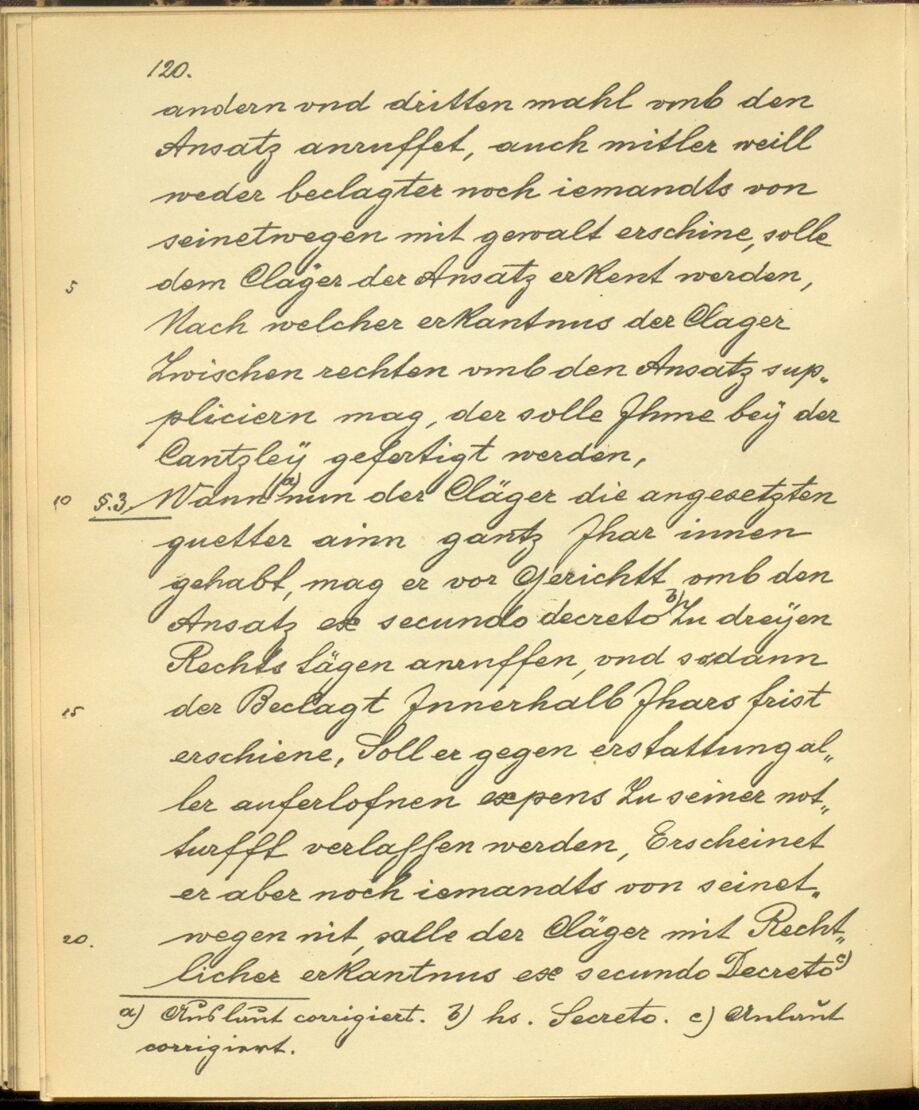 120.
andern vnd dritten mahl vmb den
Ansatz anruffet, auch mitler weill
weder beclagter noch iemandts von
seinetwegen mit gewalt erschine, solle
5 dem Cläger der Ansatz erkent werden,
Nach welcher erkantnus der Clager
Zwischen rechten vmb den Ansatz sup„
pliciern mag, der solle Jhme beÿ der
Cantzleÿ gefertigt werden,
10 §.3. Wann a) nun der Cläger die angesetzten
guetter ainn gantz Jhar innen
gehabt, mag er vor Gerichtt vmb den
Ansatz ex secundo decreto b) Zu dreÿen
Rechts tägen anruffen, vnd sodann
15 der Beclagt Jnnerhalb Jhars frist
erschiene, Soll er gegen erstattung al„
ler auferlofnen expens Zu seiner not„
turfft verlassen werden, Erscheinet
er aber noch iemandts von seinet„
20. wegen nit, solle der Cläger mit Recht„
licher erkantnus ex secundo Decreto c)
a) Auslaut corrigiert. b) hs. Secreto. c) Anlaut
corrigiert.